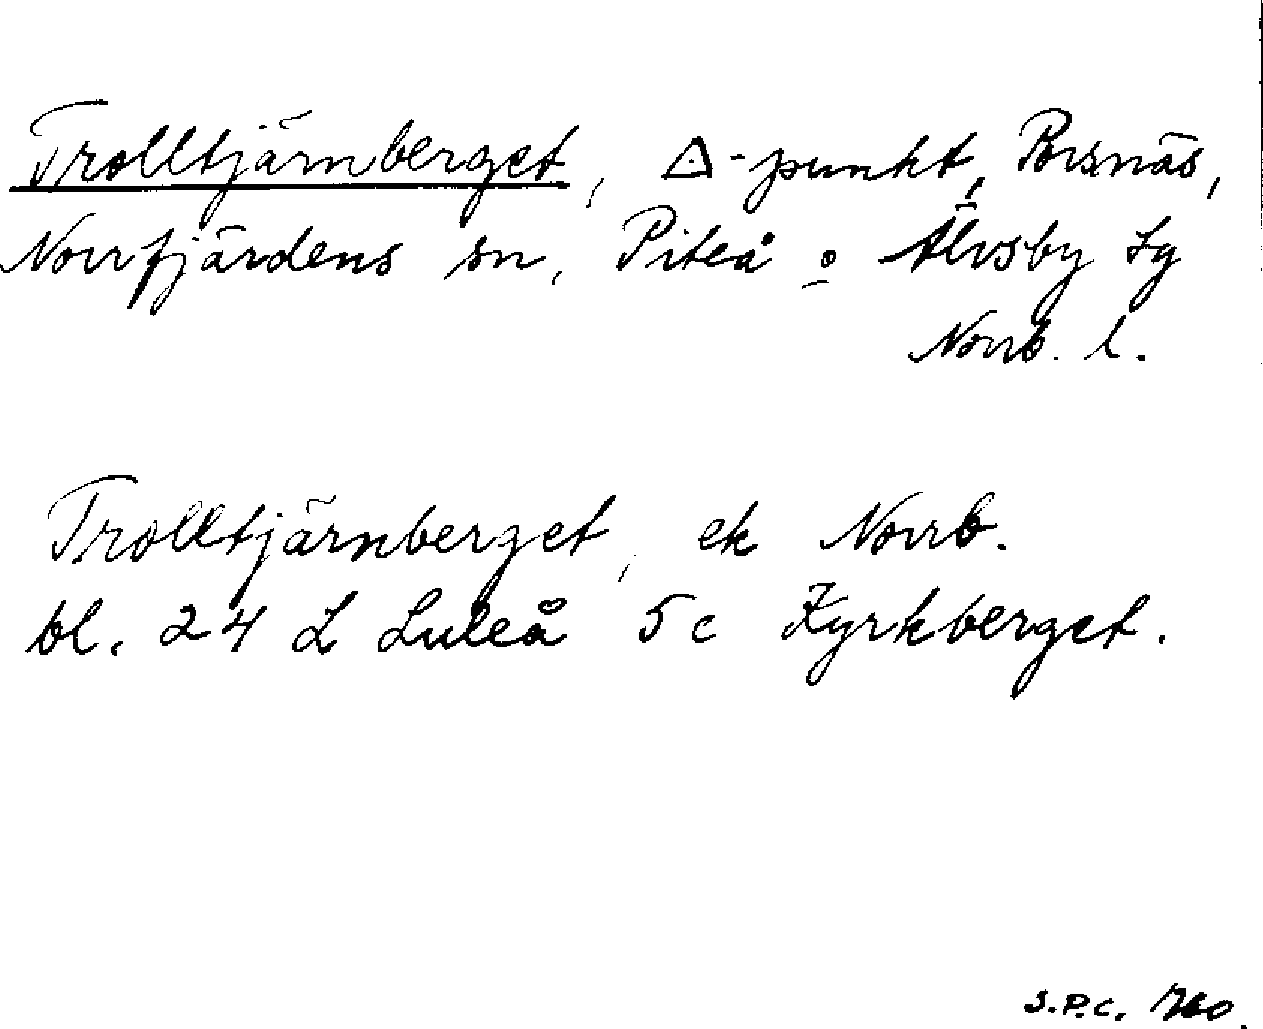 Trolltjärnberget, △-punkt, Porsnäs,
Norrfjärdens sn, Piteå o Älvsby tg
Norrb. l.
Trolltjärnberget, ek Norrb.
bl. 24 L Luleå 5c Kyrkberget.
S.P.C.